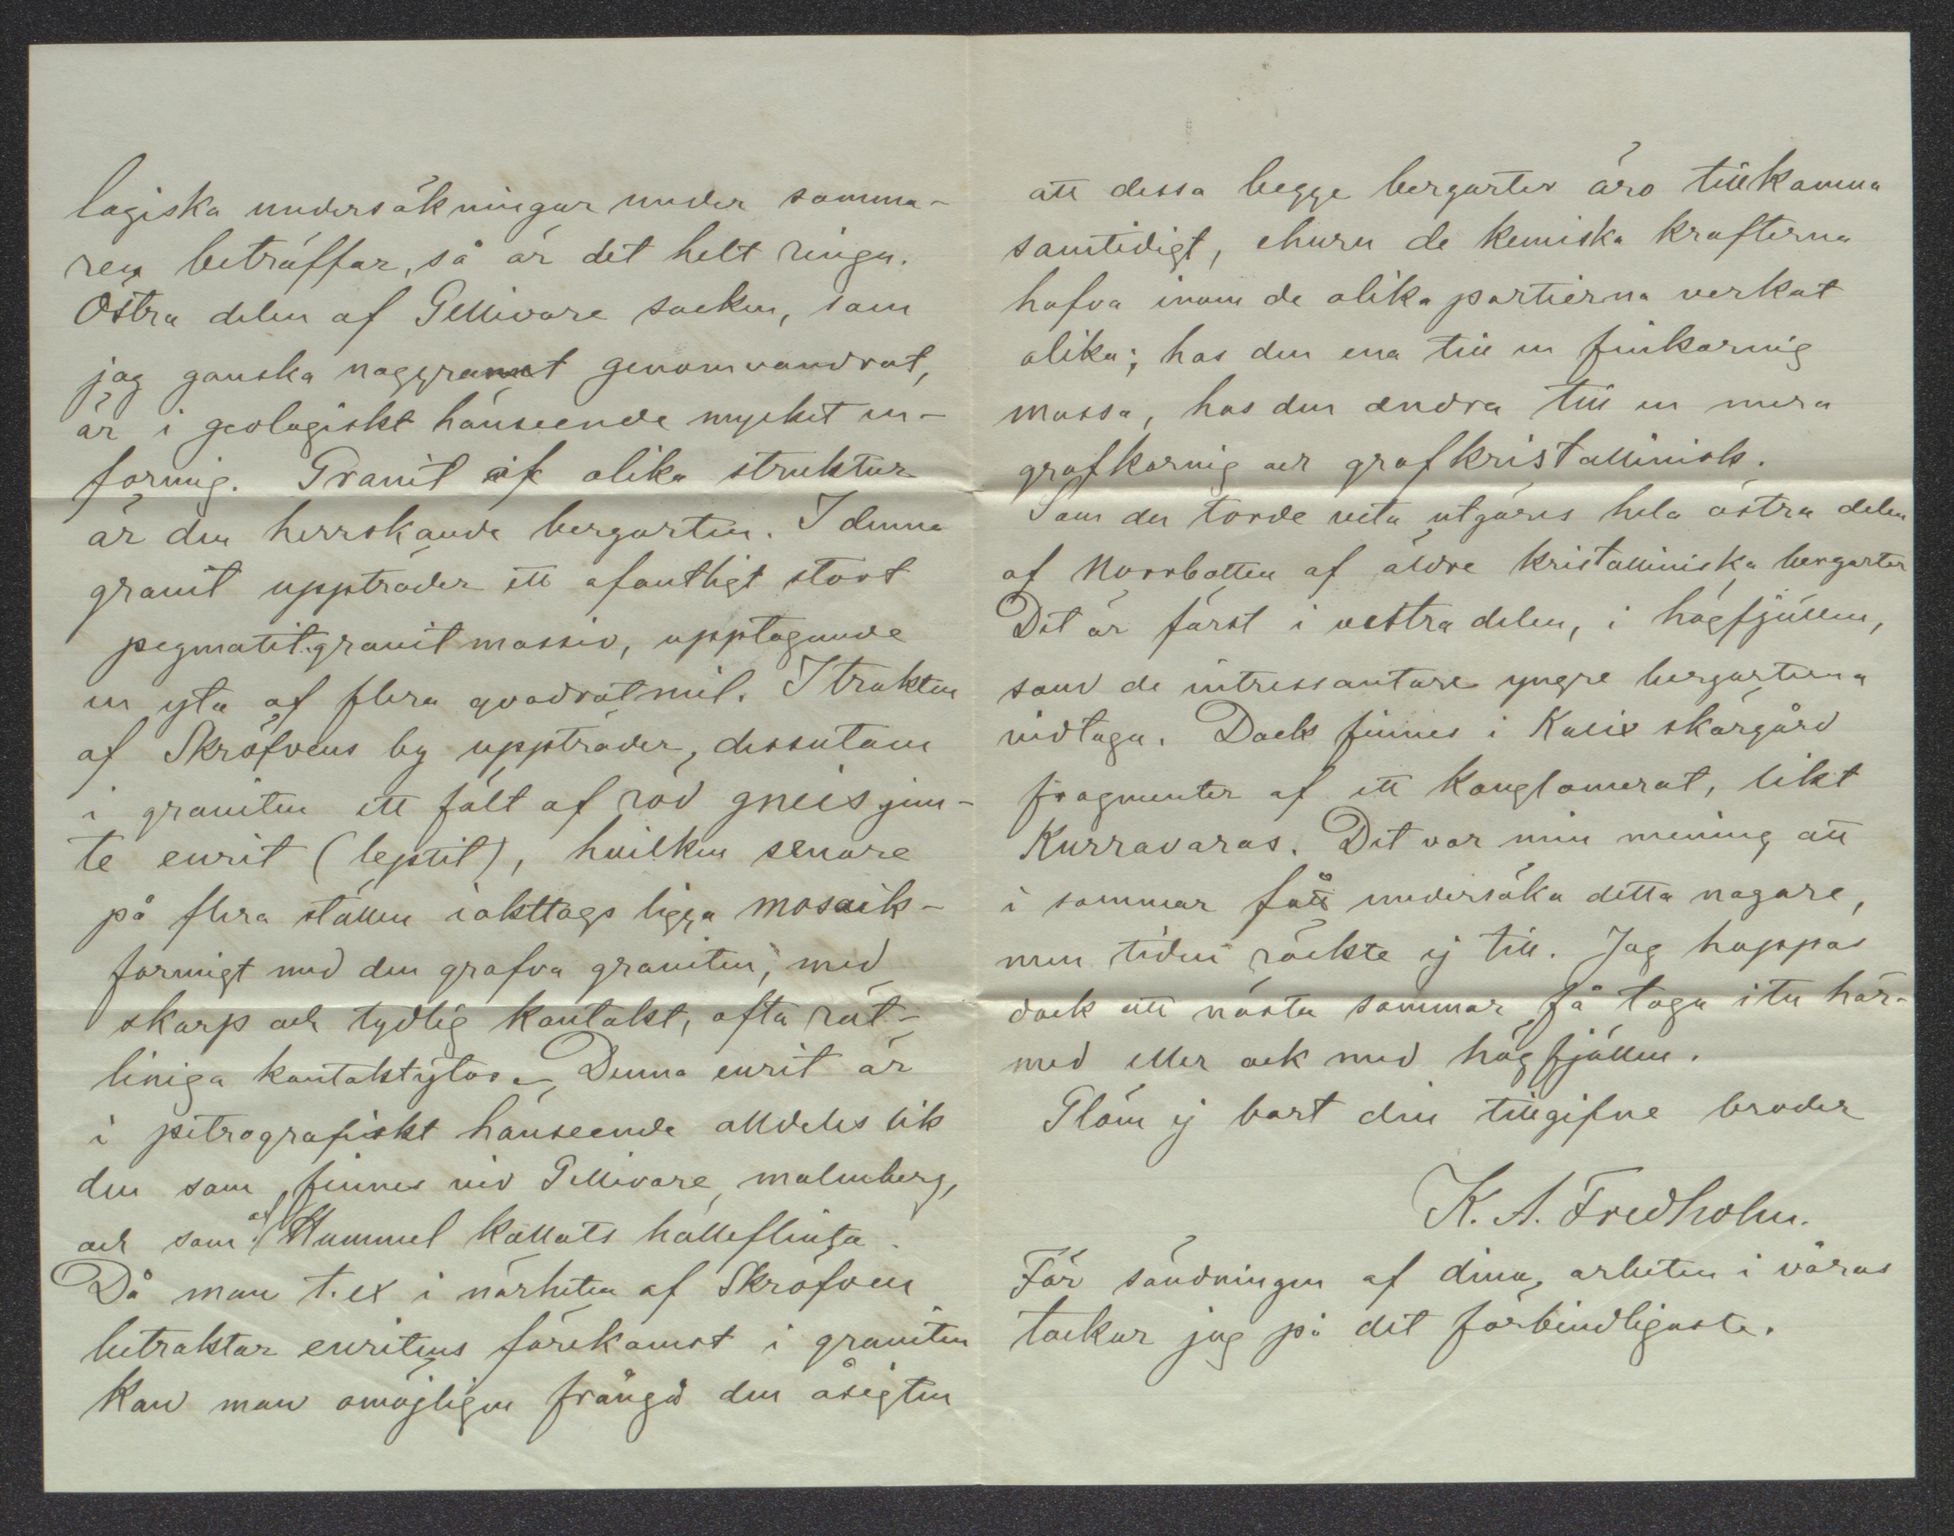 logiska undersökningar under somma-
ren beträffar, så är det helt ringa.
Östra delen af Gellivare socken, som
jag ganska noggrannt genomvandrat,
är i geologiskt hänseende mycket en-
formig. Granit af olika struktur
är den herrskande bergarten. I denna
granit uppträder ett ofantligt stort
pegmatit-granit massiv, upptagande
en yta af flera qvadratmil. I trakten
af Skröfvens by uppträder, dessutom
i graniten ett fält af röd gneisjem-
te eurit (leptit), hvilken senare
på flera ställen iakttags ligga mosaik-
formigt med den grofva graniten, med
skarp och tydlig kontakt, ofta rät-
liniga kontaktytor. Denna eurit är
i petrografiskt hänseende alldeles lik
den som finnes vid Gellivare malmberg,
och som af Hummel kallats hälleflinta.
Då man t.ex i närheten af Skröfven
betraktar euritens förekomst i graniten
kan man omöjligen frångå den åsigten
att dessa begge bergarter äro tillkomna
samtidigt, ehuru de kemiska krafterna
hafva inom de olika partierna verkat
olika; hos den ena till en finkornig
massa, hos den andra till en mera
grofkornig och grofkristallinisk.
Som du torde veta utgöres hela östra delen
af Norrbotten af äldre kristalliniska bergarter
Det är först i vestra delen, i högfjällen,
som de intressantare yngre bergarterna
vidtaga. Dock finnes i Kalix skärgård
fragmenter af ett konglomerat, likt
Kurravaras. Det var min mening att
i sommar få undersöka detta nogare,
men tiden räckte ej till. Jag hoppas
dock att nästa sommar få taga itu här-
med eller ock med högfjällen.
Glöm ej bort din tillgifne broder
K. A. Fredholm.
För sändningen af dina arbeten i våras
tackar jag på det förbindligaste.